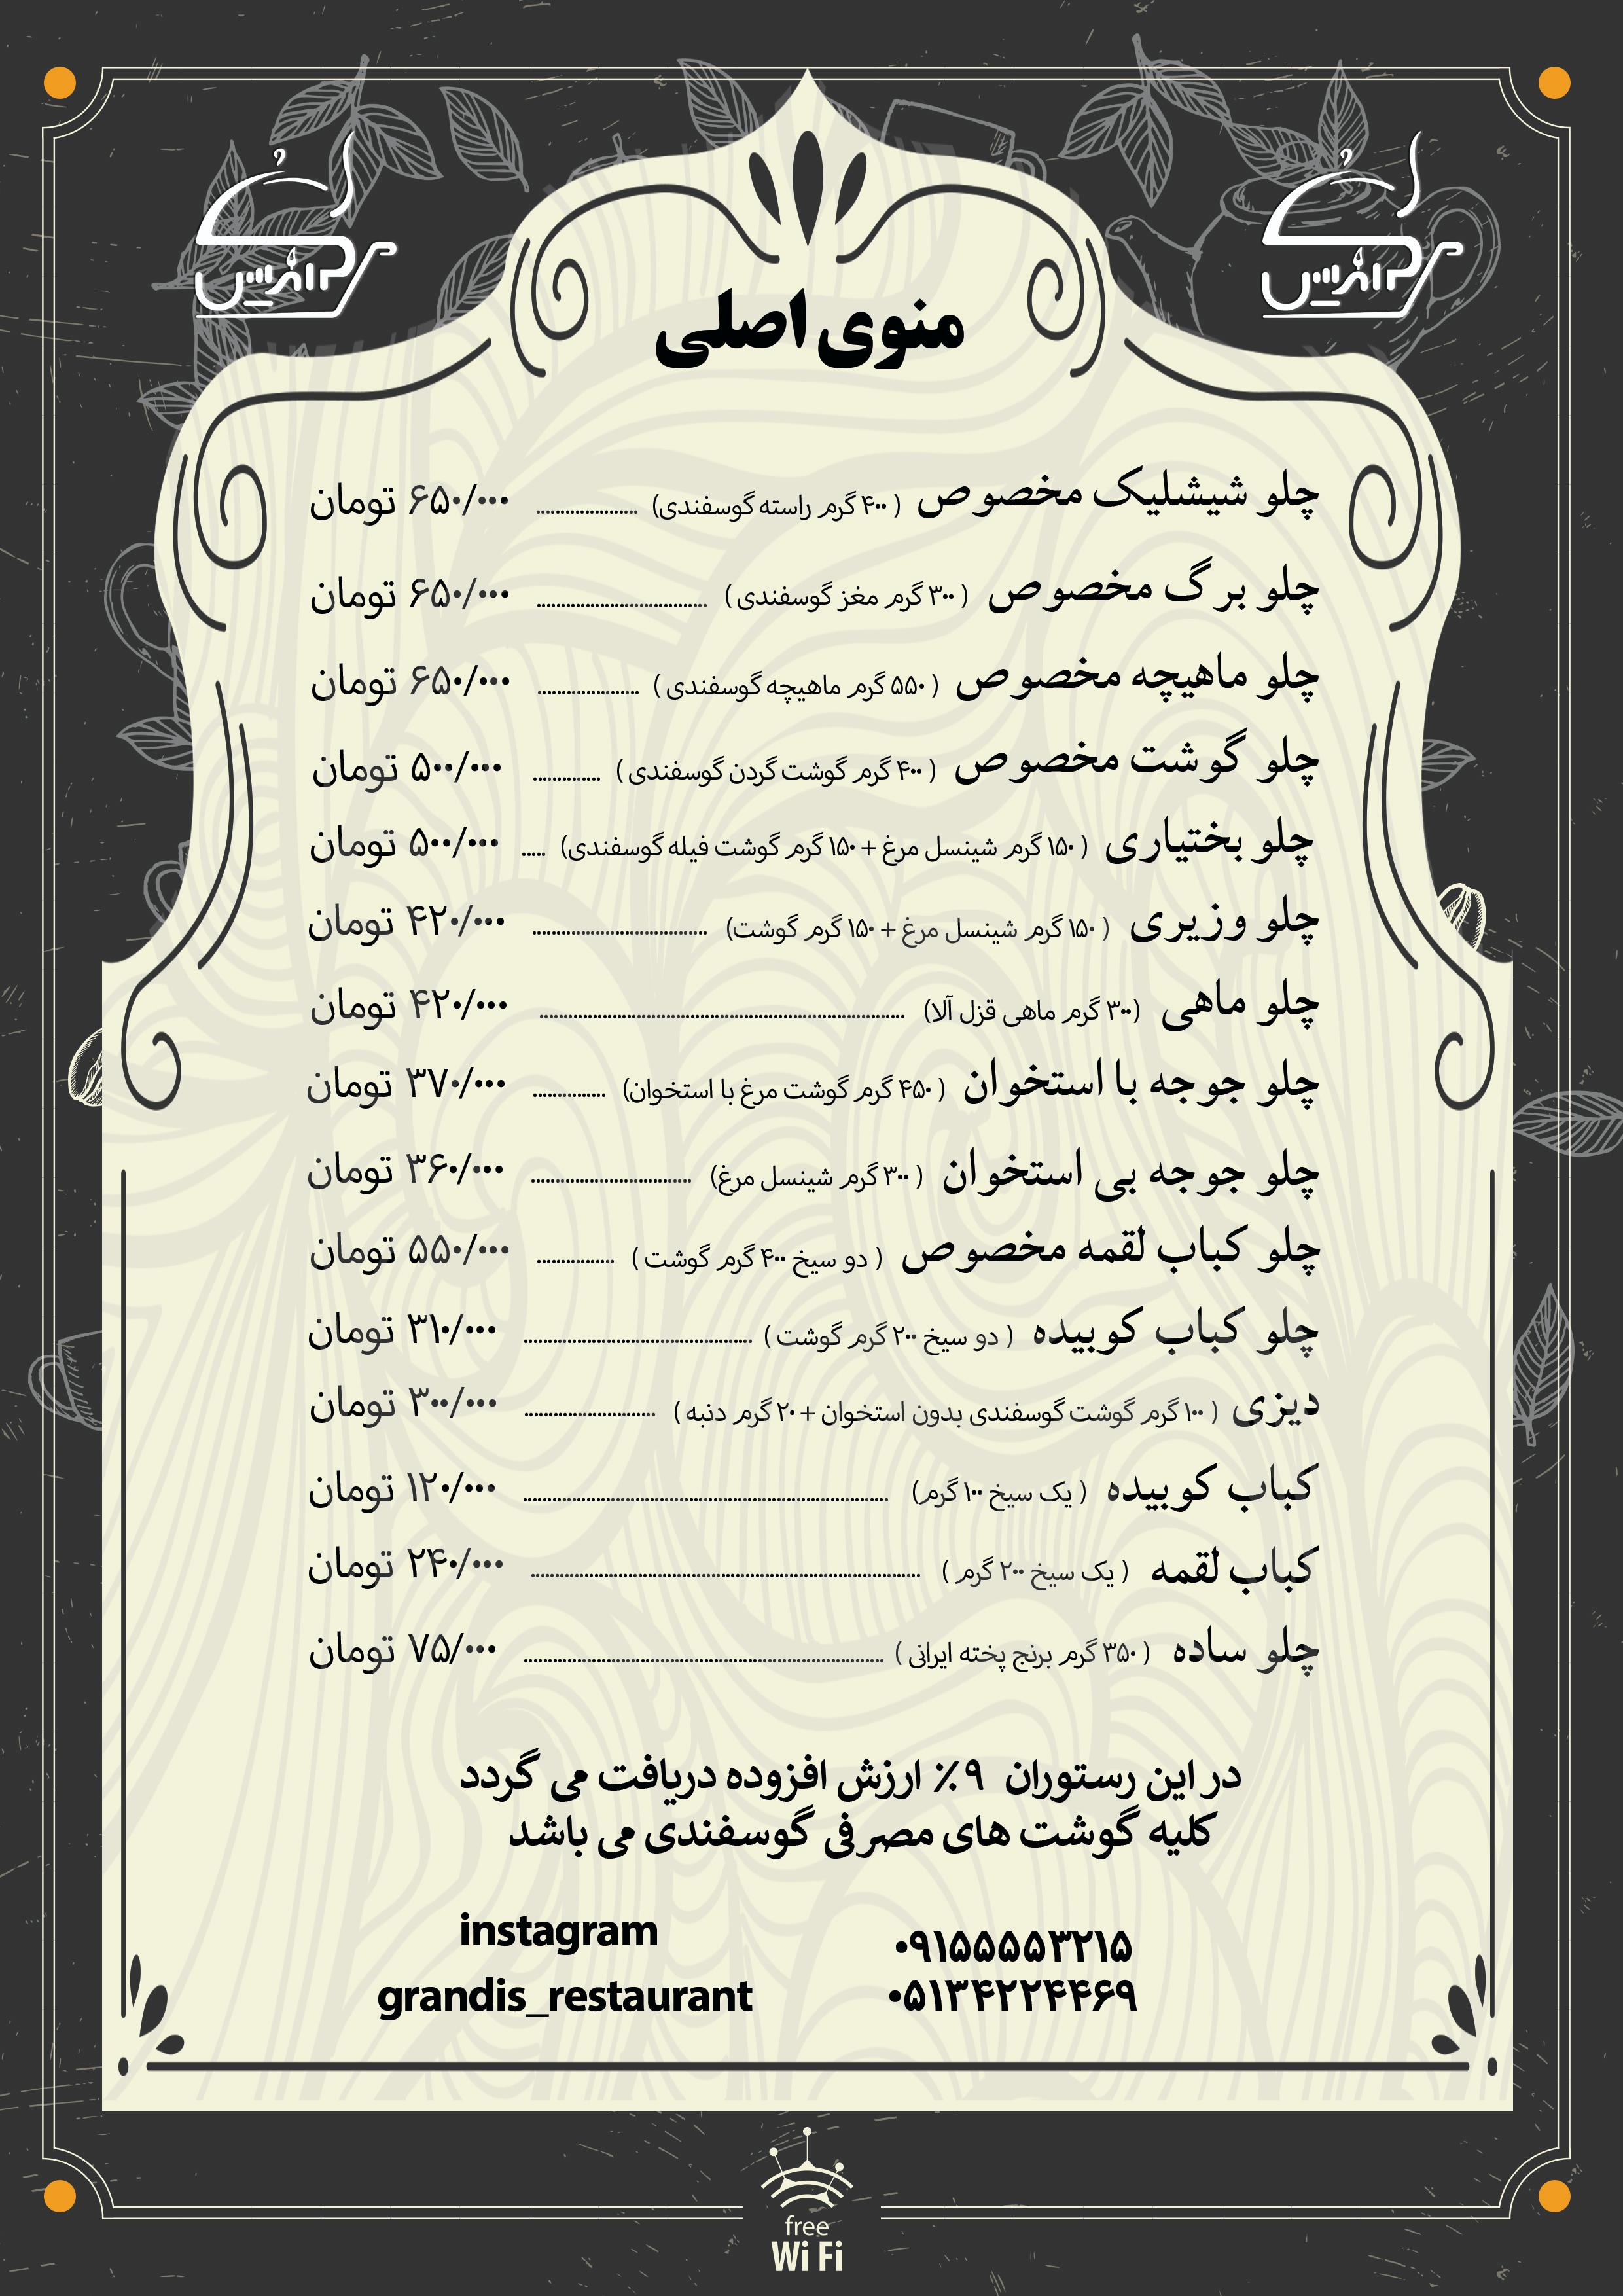 گراندیس
گراندیس
منوی اصلی
چلو شیشلیک مخصوص ( ۴۰۰ گرم راسته گوسفندی) ..................... ۶۵۰/۰۰۰ تومان
چلو برگ مخصوص ( ۳۰۰ گرم مغز گوسفندی ) ................................... ۶۵۰/۰۰۰ تومان
چلو ماهیچه مخصوص ( ۵۵۰ گرم ماهیچه گوسفندی ) ..................... ۶۵۰/۰۰۰ تومان
چلو گوشت مخصوص ( ۴۰۰ گرم گوشت گردن گوسفندی ) .............. ۵۰۰/۰۰۰ تومان
چلو بختیاری ( ۱۵۰ گرم شینسل مرغ + ۱۵۰ گرم گوشت فیله گوسفندی) ..... ۵۰۰/۰۰۰ تومان
چلو وزیری ( ۱۵۰ گرم شینسل مرغ + ۱۵۰ گرم گوشت) .................................... ۴۲۰/۰۰۰ تومان
چلو ماهی (۳۰۰ گرم ماهی قزل آلا) ........................................................................... ۴۲۰/۰۰۰ تومان
چلو جوجه با استخوان ( ۴۵۰ گرم گوشت مرغ با استخوان) ............... ۳۷۰/۰۰۰ تومان
چلو جوجه بی استخوان ( ۳۰۰ گرم شینسل مرغ) ................................. ۳۶۰/۰۰۰ تومان
چلو کباب لقمه مخصوص ( دو سیخ ۴۰۰ گرم گوشت ) ................ ۵۵۰/۰۰۰ تومان
چلو کباب کوبیده ( دو سیخ ۲۰۰ گرم گوشت ) ............................................... ۳۱۰/۰۰۰ تومان
دیزی ( ۱۰۰ گرم گوشت گوسفندی بدون استخوان + ۲۰ گرم دنبه ) ........................... ۳۰۰/۰۰۰ تومان
کباب کوبیده ( یک سیخ ۱۰۰ گرم) ........................................................................... ۱۲۰/۰۰۰ تومان
کباب لقمه ( یک سیخ ۲۰۰ گرم ) ................................................................................ ۲۴۰/۰۰۰ تومان
چلو ساده ( ۳۵۰ گرم برنج پخته ایرانی ) .......................................................................... ۷۵/۰۰۰ تومان
در این رستوران ۹٪ ارزش افزوده دریافت می گردد
کلیه گوشت های مصرفی گوسفندی می باشد
۰۹۱۵۵۵۵۳۲۱۵
۰۵۱۳۴۲۲۴۴۶۹
instagram
grandis_restaurant
free
Wi Fi